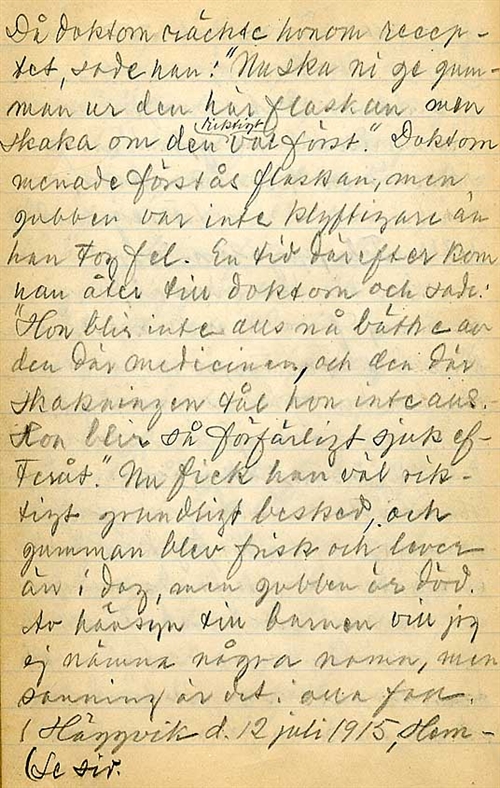 Då doktorn räckte honom recep-
tet, sade han: "Nu ska ni ge gum-
man ur den här flaskan men
skaka om den riktigt väl först." Doktorn
menade förstås flaskan, men
gubben var inte klyftigare än
han tog fel. En tid därefter kom
han åter till doktorn och sade:
"Hon blir inte alls nå bäthe av
den där medicinen, och den där
skakningen tål hon inte alls.
Hon blir så förfärligt sjuk ef-
teråt." Nu fick han väl rik-
tigt grundligt besked, och
gumman blev frisk och lever
än i dag, men gubben är död.
Av hänsyn till barnen vill jag
ej nämna några namn, men
sanning är det i alla fall.
Häggvik d. 12 juli 1915, Hem-
(Se sid.